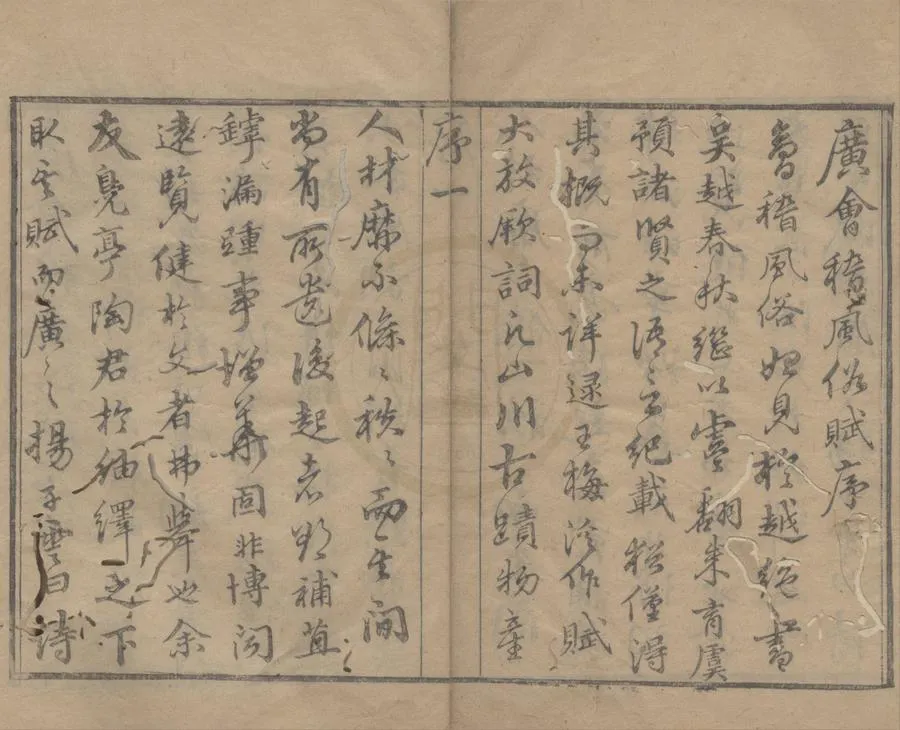 廣會稽風俗賦序
會稽風俗始見於越絕書
吳越春秋繼以虞翻朱育虞
預諸賢之語言紀載猶僅得
其概而未詳逮王梅溪作賦
大放厥詞凡山川古蹟物產
序一
人材靡不條〻秩〻而其間
尚有所遺後起者欲補苴
罅漏踵事增華固非博聞
遠覽健於文者弗學也余
友鳧亭陶君於紬繹之下
取其賦而廣之揚子雲曰詩